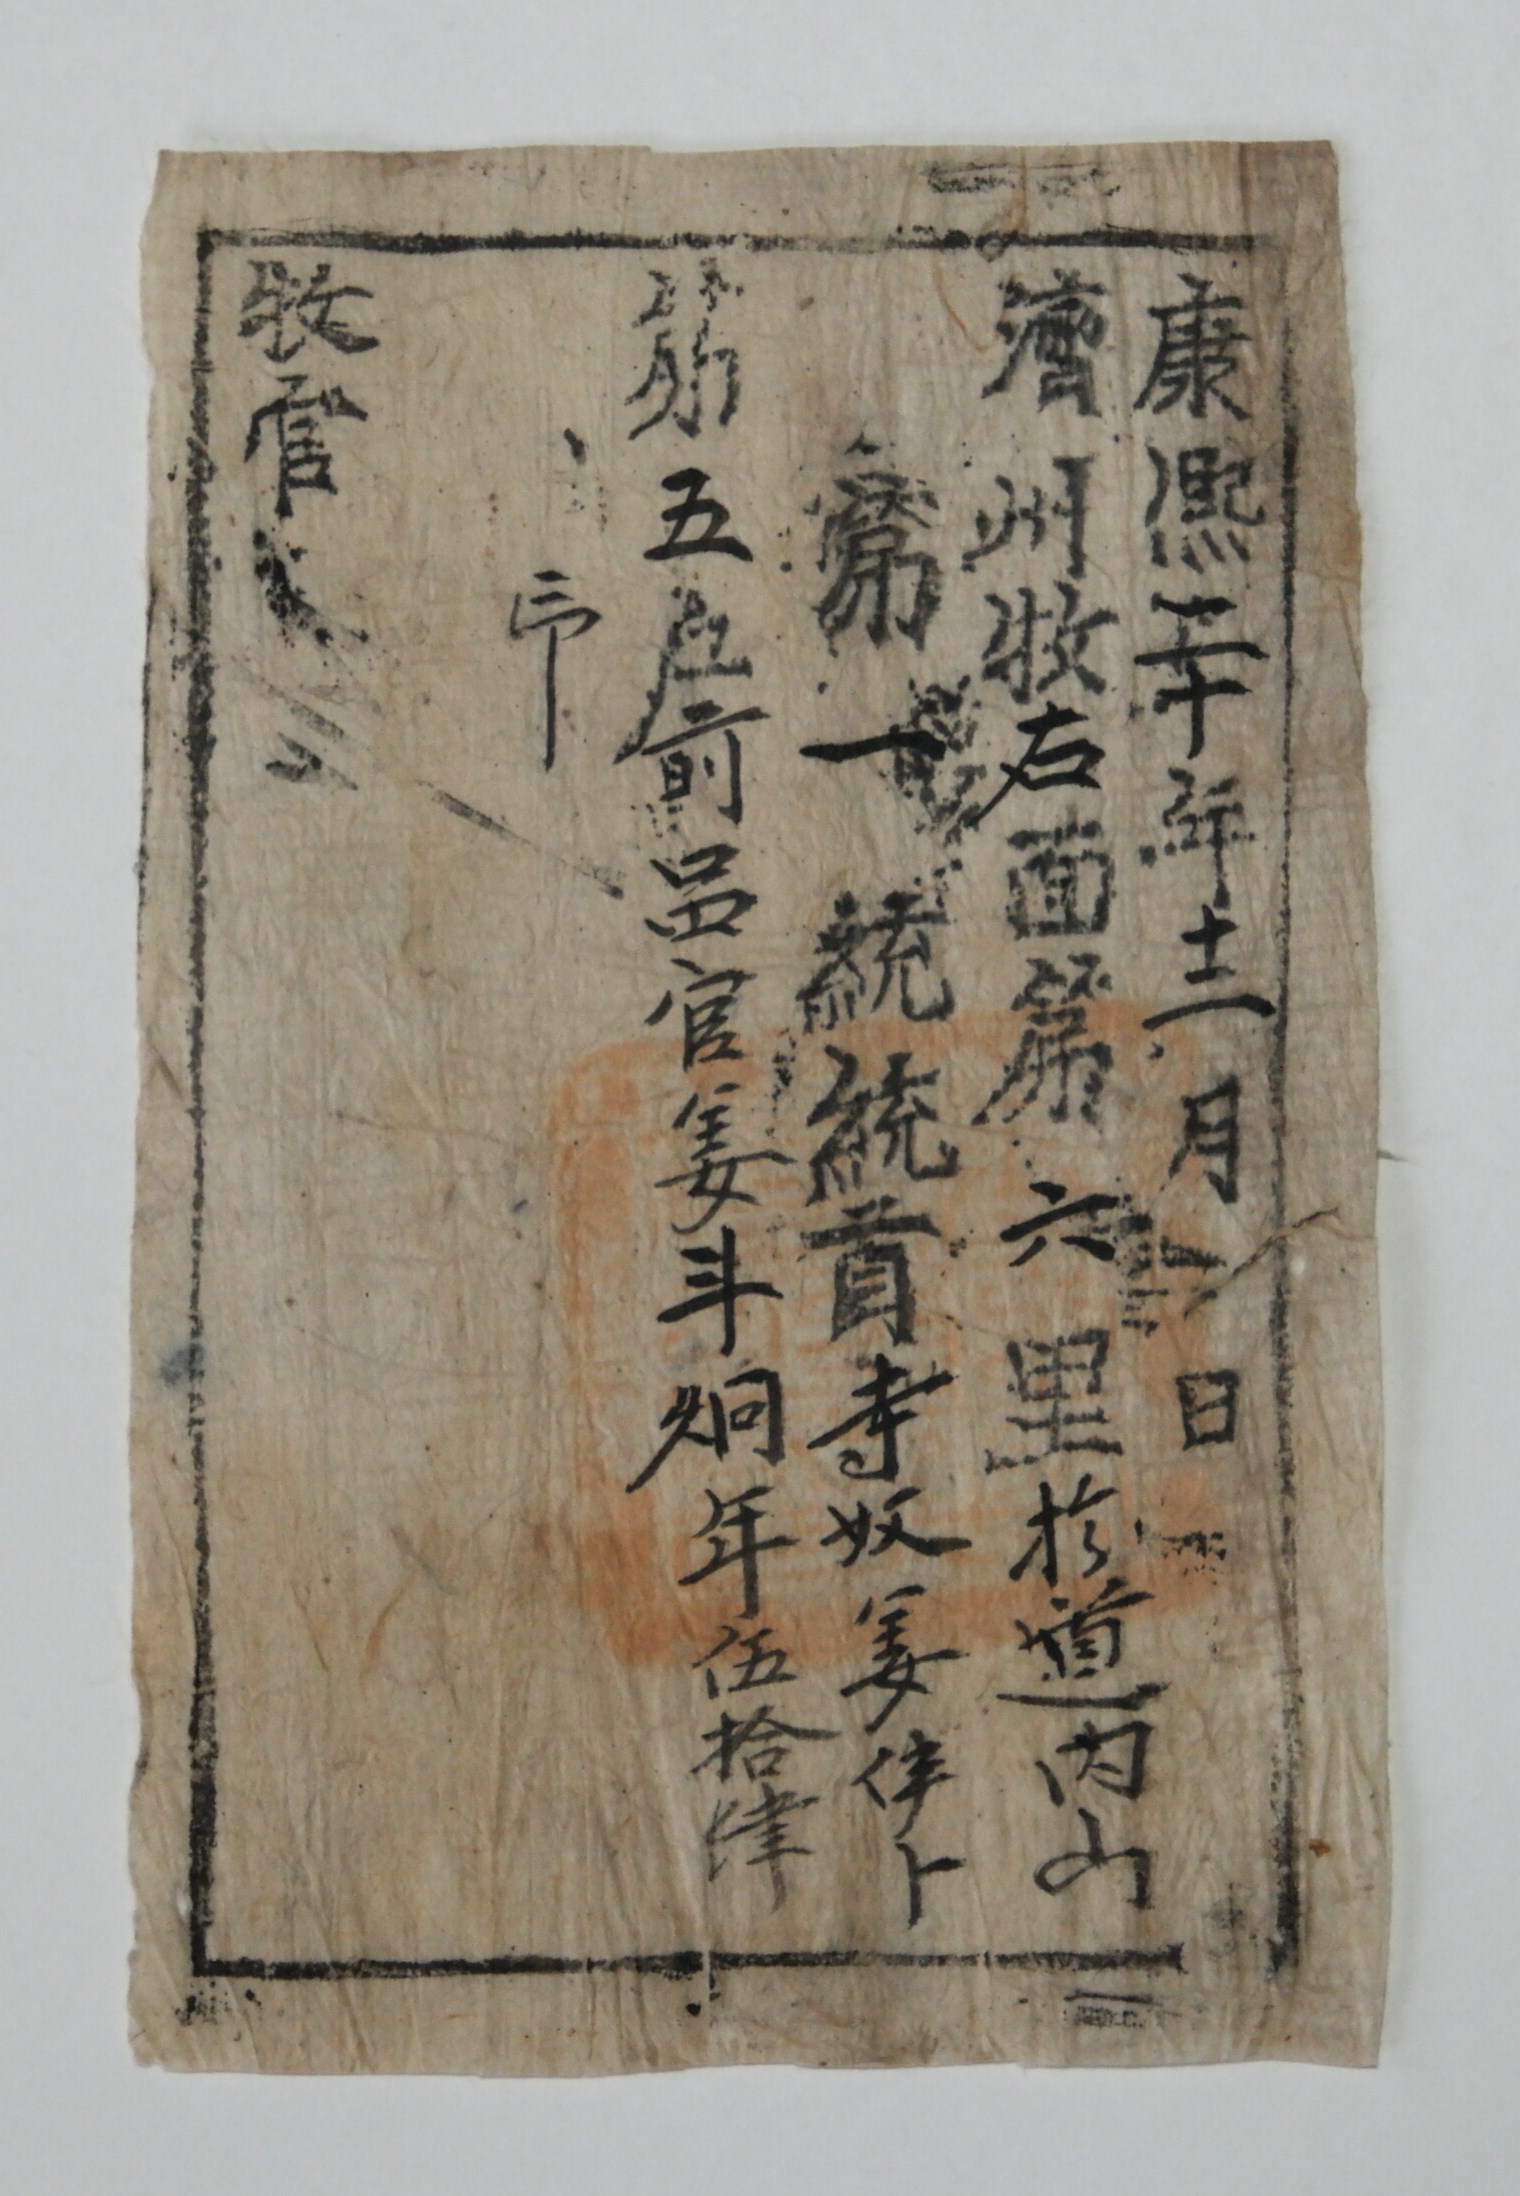 康熙五十年十二月　日
濟州牧右面第六里於道內山
第一統統首寺奴姜仵卜
第五戶前呂官姜斗炯年伍拾肆
印
牧官